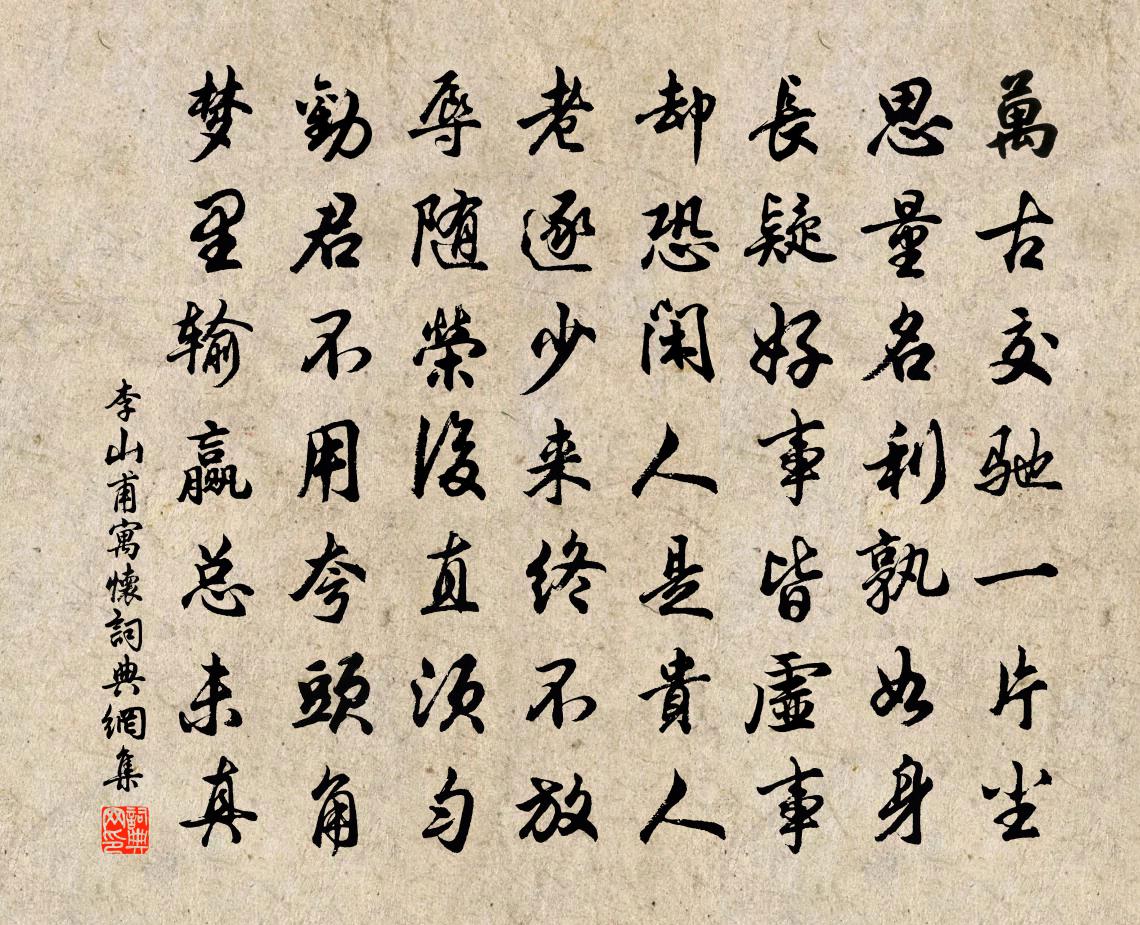 萬古交馳一片尘
思量名利孰如身
長疑好事皆虛事
却恐闲人是貴人
老逐少来终不放
辱随榮後直须匀
勸君不用夸頭角
梦里输赢总未真
李山甫寓懷詞典網集
詞典网印